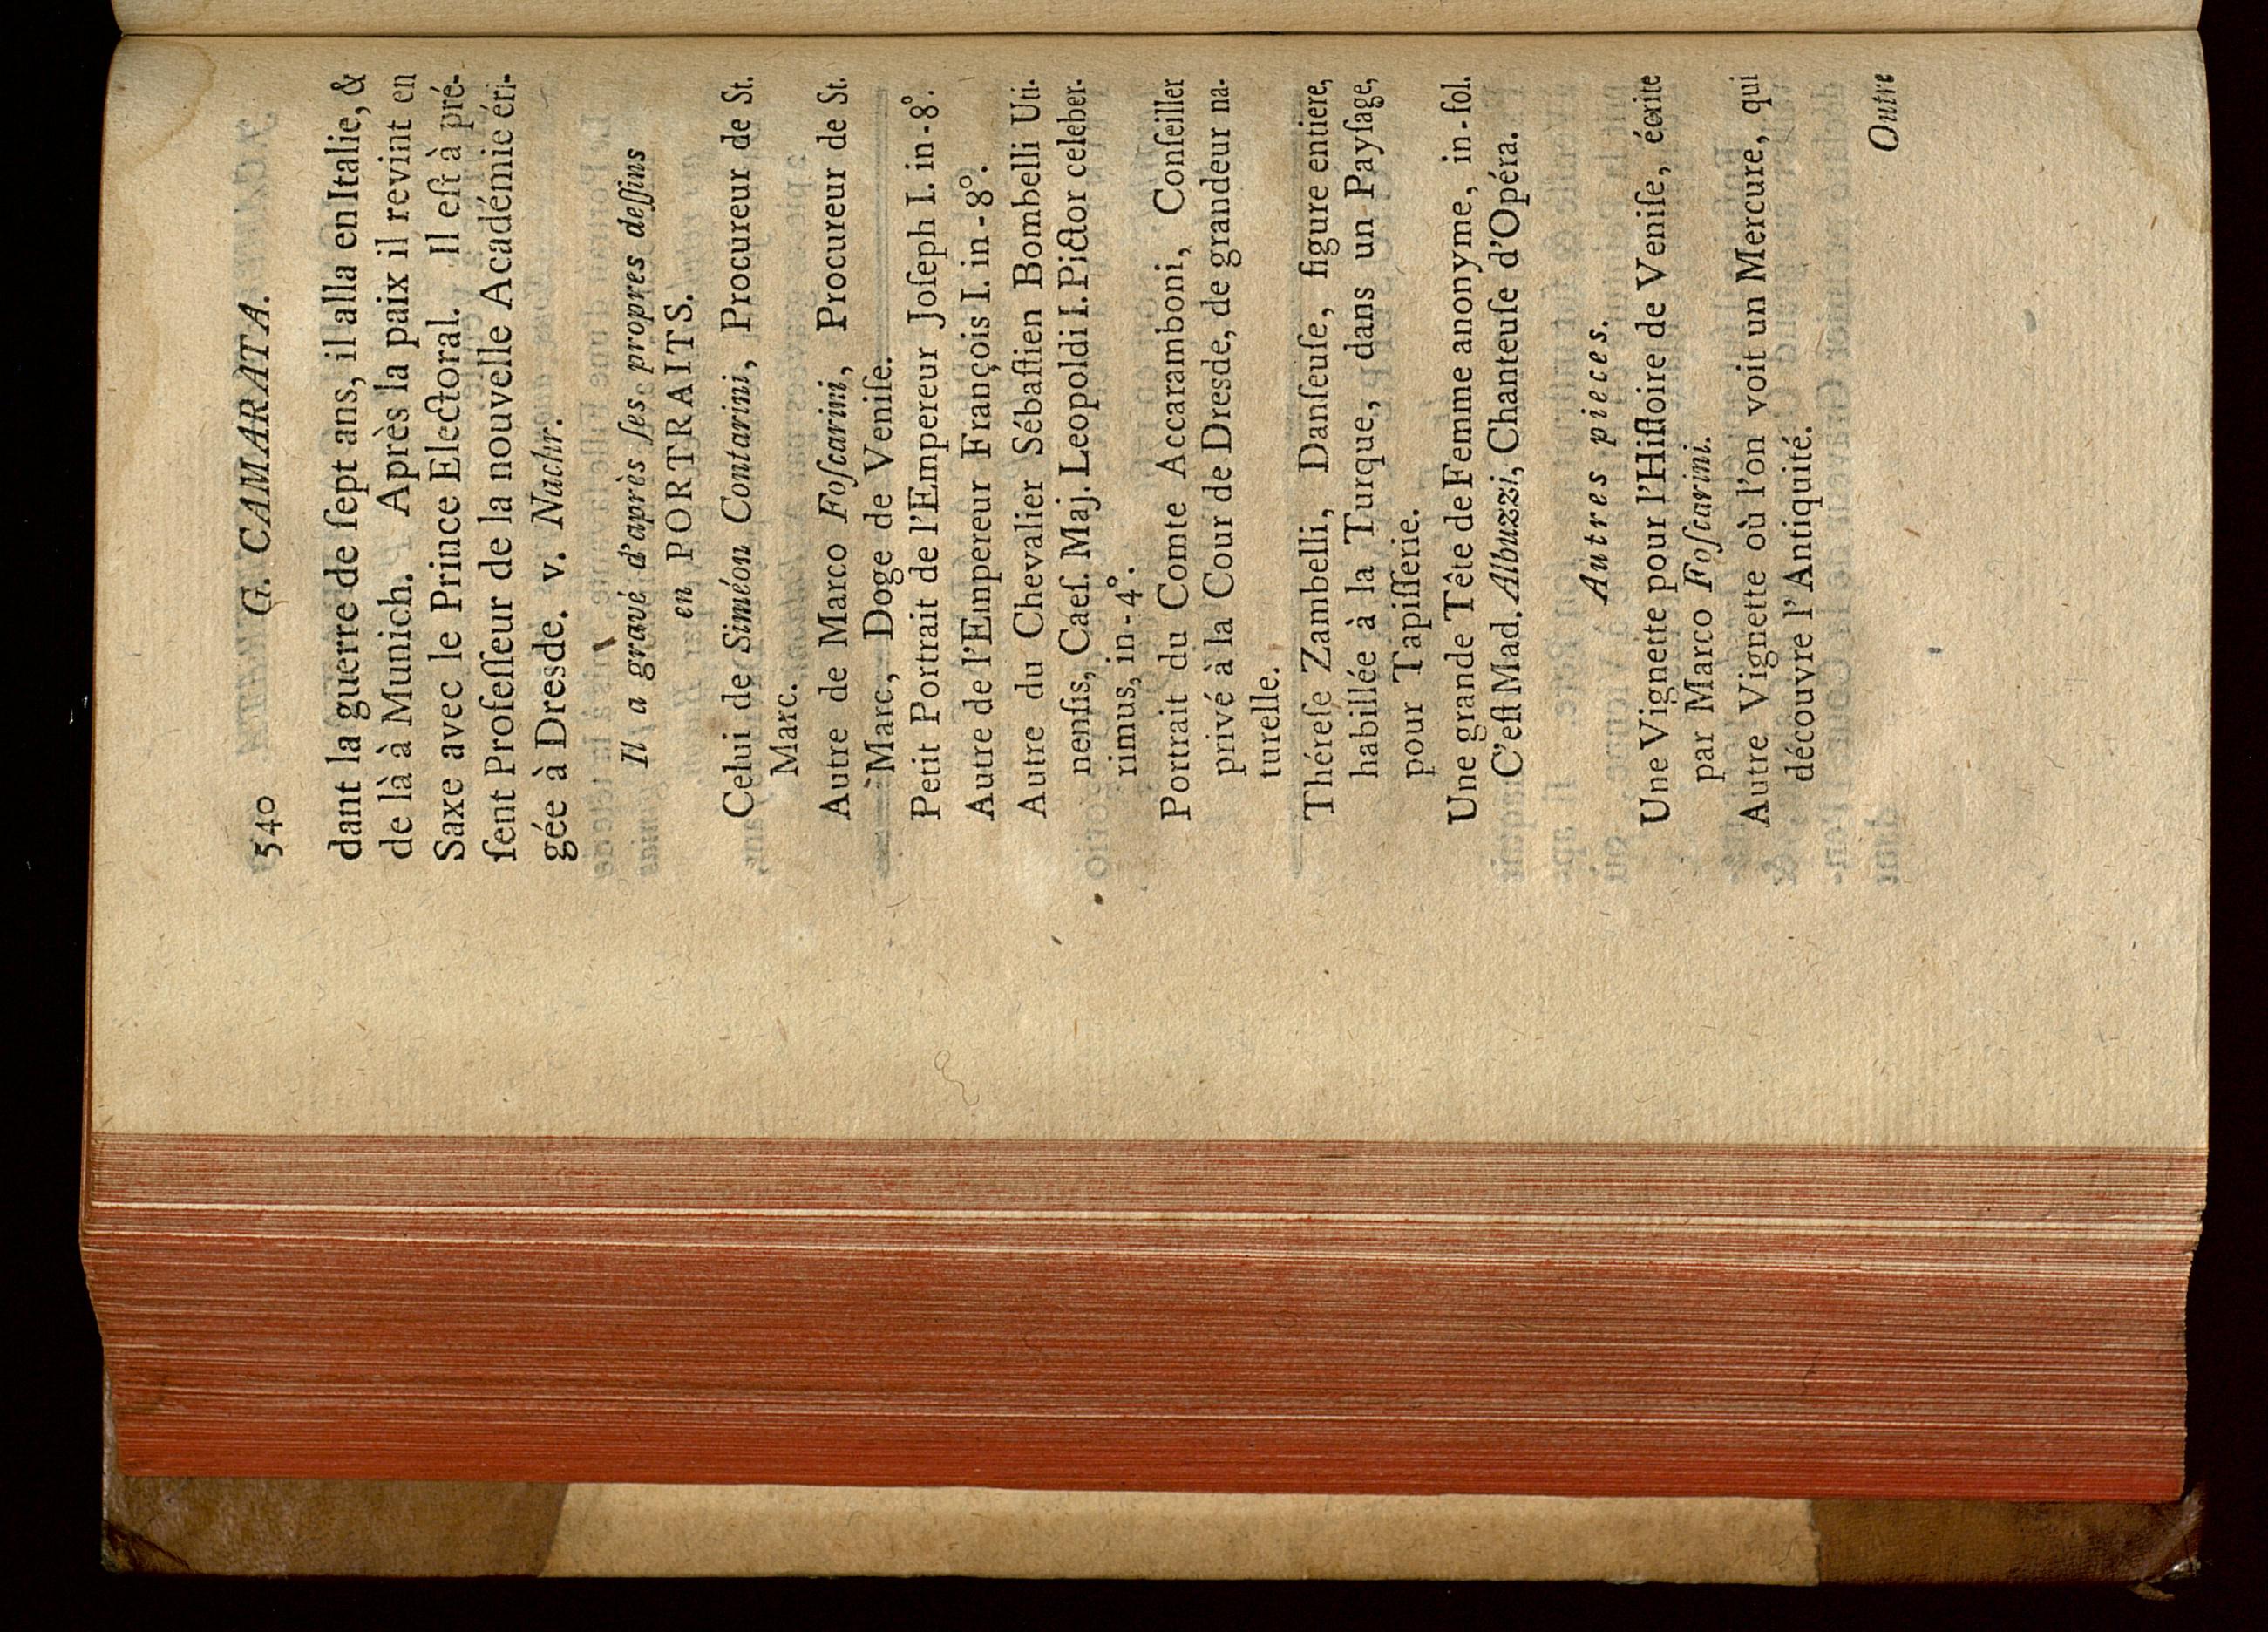 540 G. CAMARATA.
dant la guerre de ſept ans, il alla en Italie, &
de là à Munich. Après la paix il revint en
Saxe avec le Prince Electoral. Il eſt à pré-
ſent Profeſſeur de la nouvelle Académie éri-
gée à Dresde. v. Nachr.
Il a gravé d'après ſes propres deſſins
en PORTRAITS.
Celui de Siméon Contarini, Procureur de St.
Marc.
Autre de Marco Foſcarini, Procureur de St.
Marc, Doge de Veniſe.
Petit Portrait de l'Empereur Joſeph I. in-8°.
Autre de l'Empereur François I. in-8°.
Autre du Chevalier Sébaſtien Bombelli Uti-
nenſis, Caeſ. Maj. Leopoldi I. Pictor celeber-
rimus, in-4°.
Portrait du Comte Accaramboni, Conſeiller
privé à la Cour de Dresde, de grandeur na-
turelle.
Théreſe Zambelli, Danſeuſe, figure entiere,
habillée à la Turque, dans un Payſage,
pour Tapiſſerie.
Une grande Tête de Femme anonyme, in-fol.
C'eſt Mad. Albuzzi, Chanteuſe d'Opéra.
Autres pieces.
Une Vignette pour l'Hiſtoire de Veniſe, écrite
par Marco Foſcarini.
Autre Vignette où l'on voit un Mercure, qui
découvre l'Antiquité.
Outre